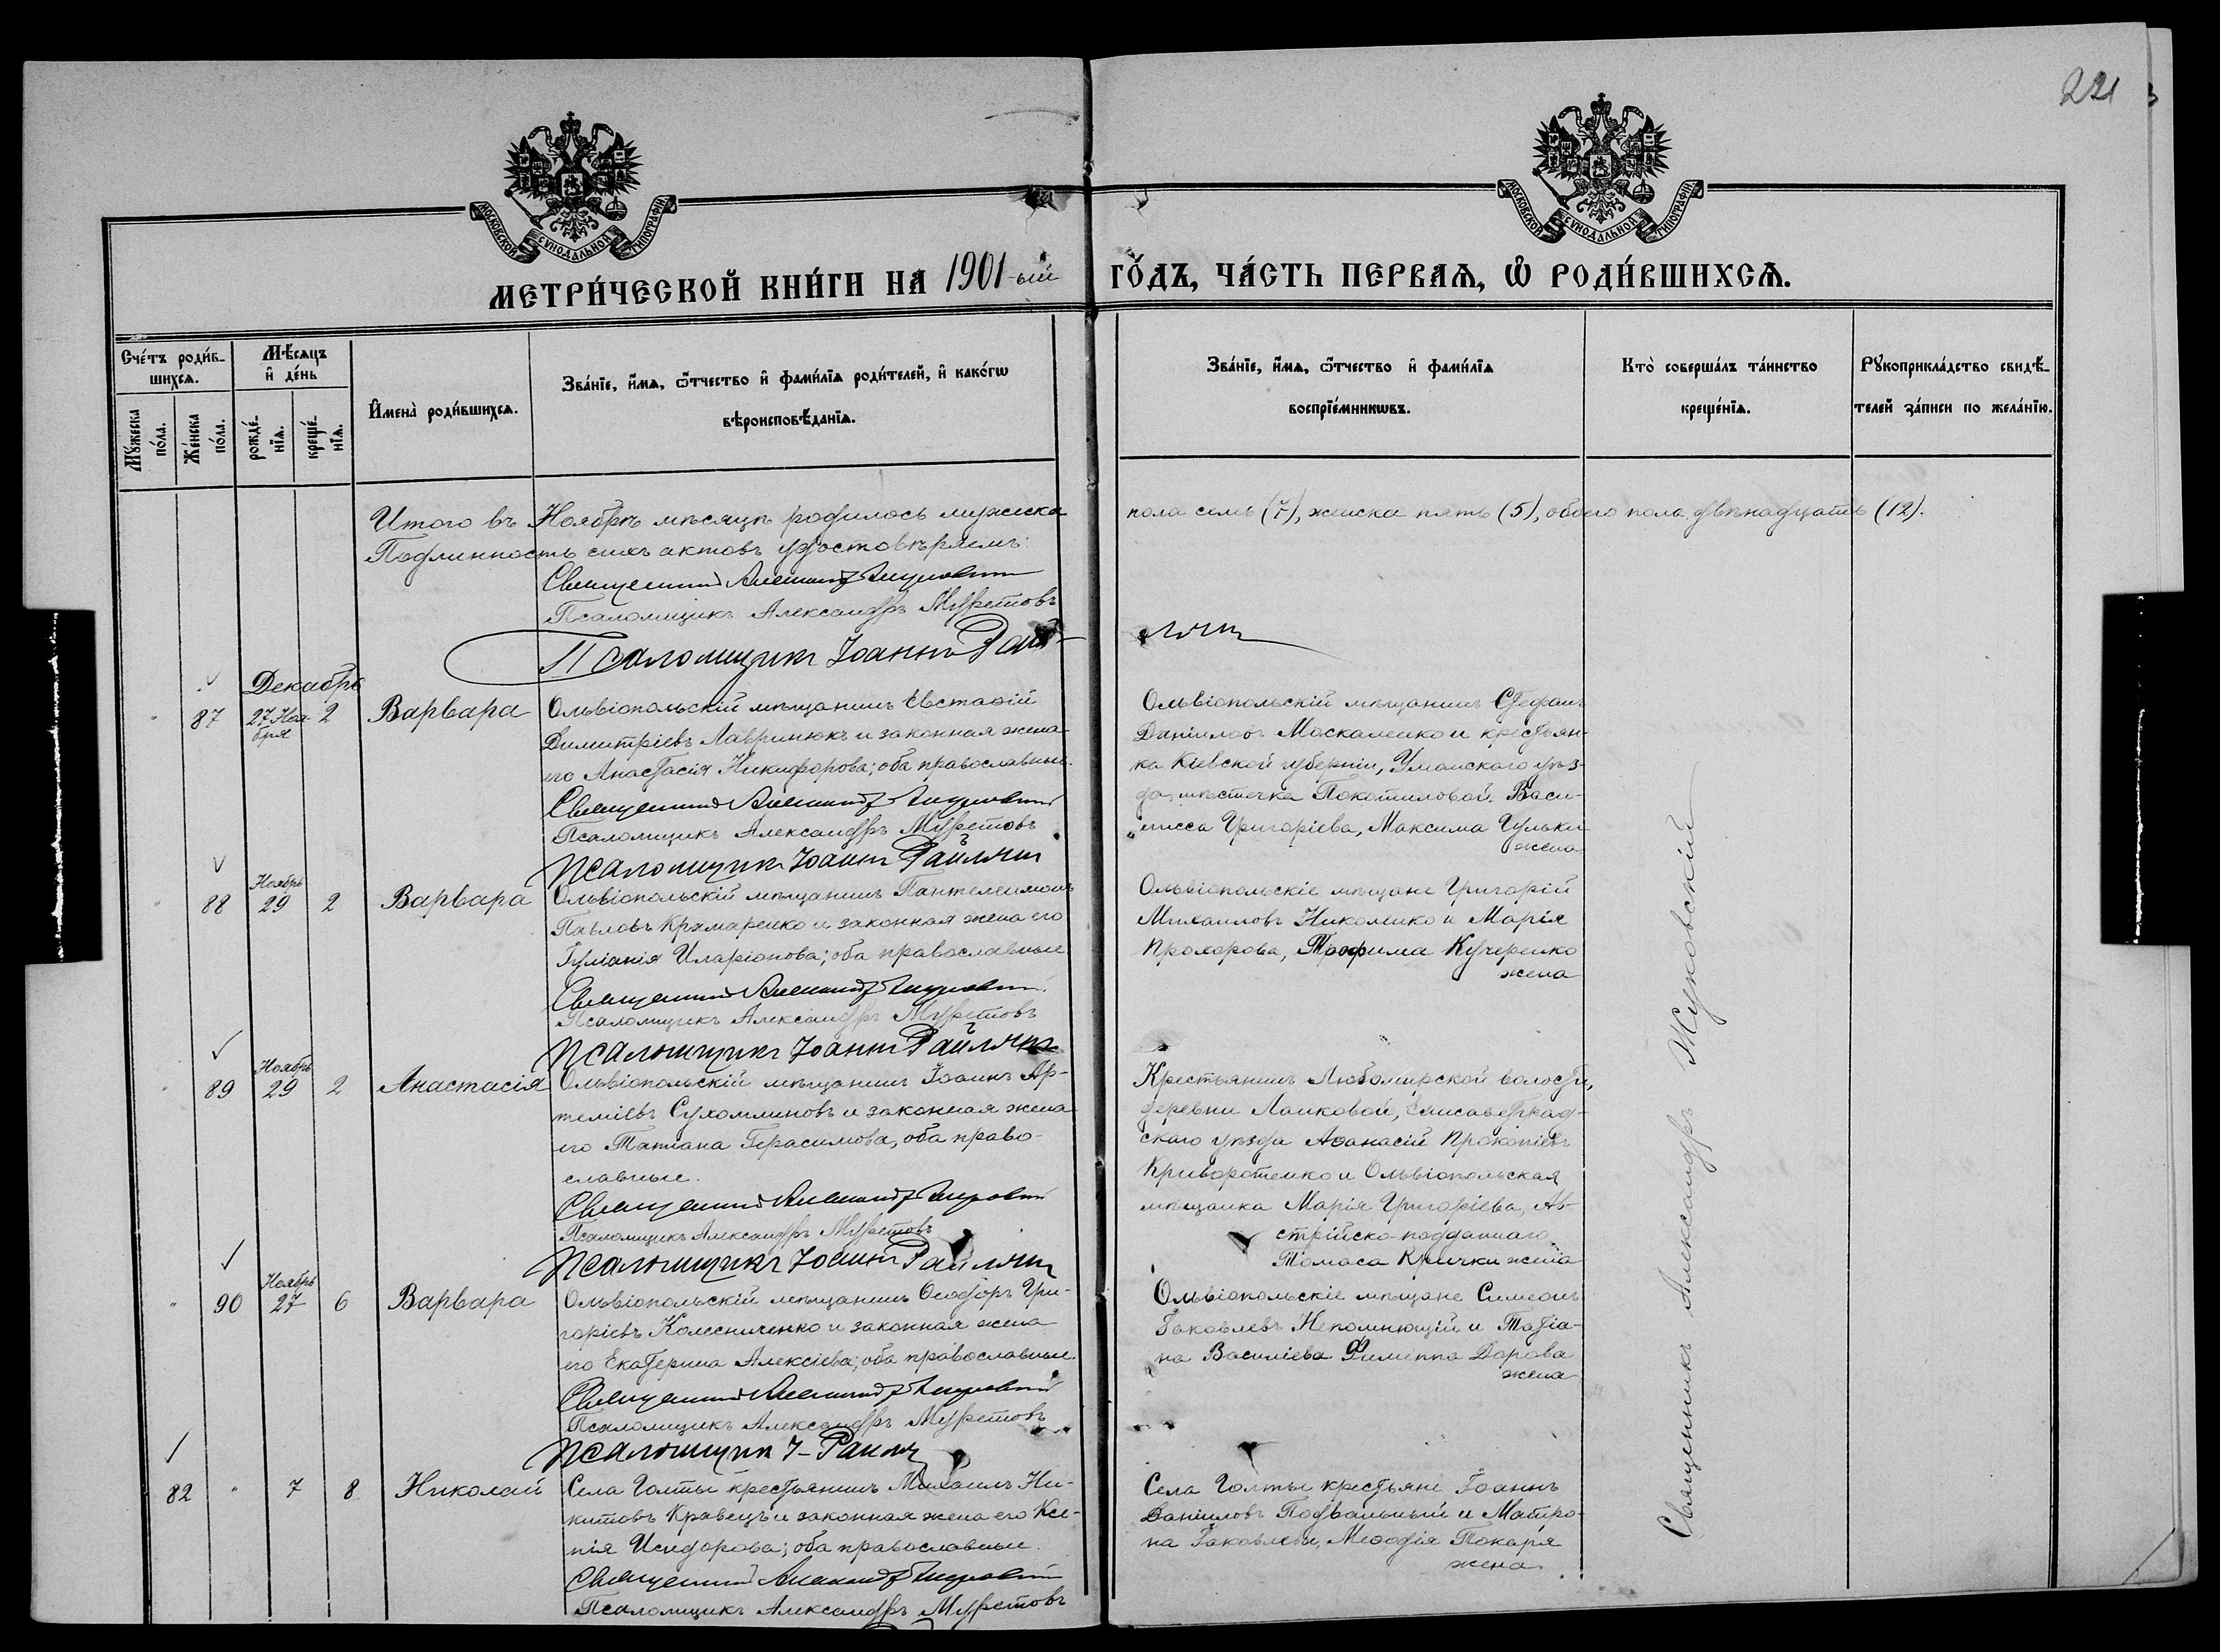 221
МОСКОВСКОЙ СѴНОДАЛЬНОЙ ТИПОГРАФІИ
МОСКОВСКОЙ СѴНОДАЛЬНОЙ ТИПОГРАФІИ
МЕТРИ́ЧЕСКОЙ КНИ́ГИ НА 1901-ый ГО́ДЪ, ЧА́СТЬ ПЕРВАѦ, Ѡ҆ РОДИ́ВШИХСѦ.
Сче́тъ роди́в-
шихсѧ.
Мꙋ́жеска
по́ла.
Же́нска
по́ла.
Мѣ́сѧцъ
и҆ де́нь
рожде́-
нїѧ.
креще́-
нїѧ.
И҆мена̀ роди́вшихсѧ.
Зва́нїе, и҆́мѧ, ѻ҆́тчество и҆ фами́лїѧ роди́телей, и҆ како́гѡ
вѣроисповѣ́данїѧ.
Зва́нїе, и҆́мѧ, ѻ҆́тчество и҆ фами́лїѧ
воспрїе́мникѡвъ.
Кто̀ соверша́лъ та́инство
креще́нїѧ.
Рꙋкоприкла́дство свидѣ́-
телей за́писи по жела́нїю.
Итого въ Ноябрѣ мѣсяцѣ родилось мужеска пола семь (7), женска пять (5), обоего пола двѣнадцать (12).
Подлинность сихъ актовъ удостовѣряемъ:
Священникъ Александръ Жуковскій
Псаломщикъ Александръ Муретовъ
Псаломщикъ Іоаннъ Рай-
лянъ
Декабрь
87 27 Ноя-
бря
2 Варвара
Ольвіопольскій мѣщанинъ Евстафій
Димитріевъ Лавринюкъ и законная жена
его Анастасія Никифорова; оба православные.
Священникъ Александръ Жуковскій
Псаломщикъ Александръ Муретовъ
Псаломщикъ Іоаннъ Райлянъ
Ольвіопольскій мѣщанинъ Стефанъ
Даніиловъ Москаленко и крестьян-
ка Кіевской губерніи, Уманскаго уѣз-
да, мѣстечка Покотиловой Васи-
лисса Григоріева, Максима Гульки
жена
88 Ноябрь
29 2 Варвара
Ольвіопольскій мѣщанинъ Пантелеимонъ
Павловъ Крамаренко и законная жена его
Іуліанія Иларіонова; оба православные
Священникъ Александръ Жуковскій
Псаломщикъ Александръ Муретовъ
Псаломщикъ Іоаннъ Райлянъ
Ольвіопольскіе мѣщане Григорій
Михаиловъ и Марія
Прохорова, Трофима Кучеренко
жена
89 Ноябрь
29 2 Анастасія
Ольвіопольскій мѣщанинъ Іоаннъ Ар-
теміевъ Сухомлиновъ и законная жена
его Татіана Герасимова, оба право-
славные.
Священникъ Александръ Жуковскій
Псаломщикъ Александръ Муретовъ
Псаломщикъ Іоаннъ Райлянъ
Крестьянинъ Любомирской волости,
деревни Елисаветград-
скаго уѣзда Аѳанасій Прокопіевъ
Криворотенко и Ольвіопольская
мѣщанка Марія Григоріева, Ав-
стрійско-подданнаго
Томаса Крички жена
90 Ноябрь
27 6 Варвара
Ольвіопольскій мѣщанинъ Ѳеодоръ Гри-
горіевъ Колесниченко и законная жена
его Екатерина Алексіева; оба православные.
Священникъ Александръ Жуковскій
Псаломщикъ Александръ Муретовъ
Псаломщикъ І. Райлянъ
Ольвіопольскіе мѣщане Симеонъ
Іаковлевъ Непомнющій и Татіа-
на Василіева Филиппа Дорова
жена
82 " 7 8 Николай
Села Голты крестьянинъ Михаилъ Ни-
китовъ Кравецъ и законная жена его Ксе-
нія Исидорова; оба православные.
Священникъ Александръ Жуковскій
Псаломщикъ Александръ Муретовъ
Села Голты крестьяне Іоаннъ
Даніиловъ Подвальный и Матро-
на Іаковлева, Меѳодія Токаря
жена
Священникъ Александръ Жуковскій